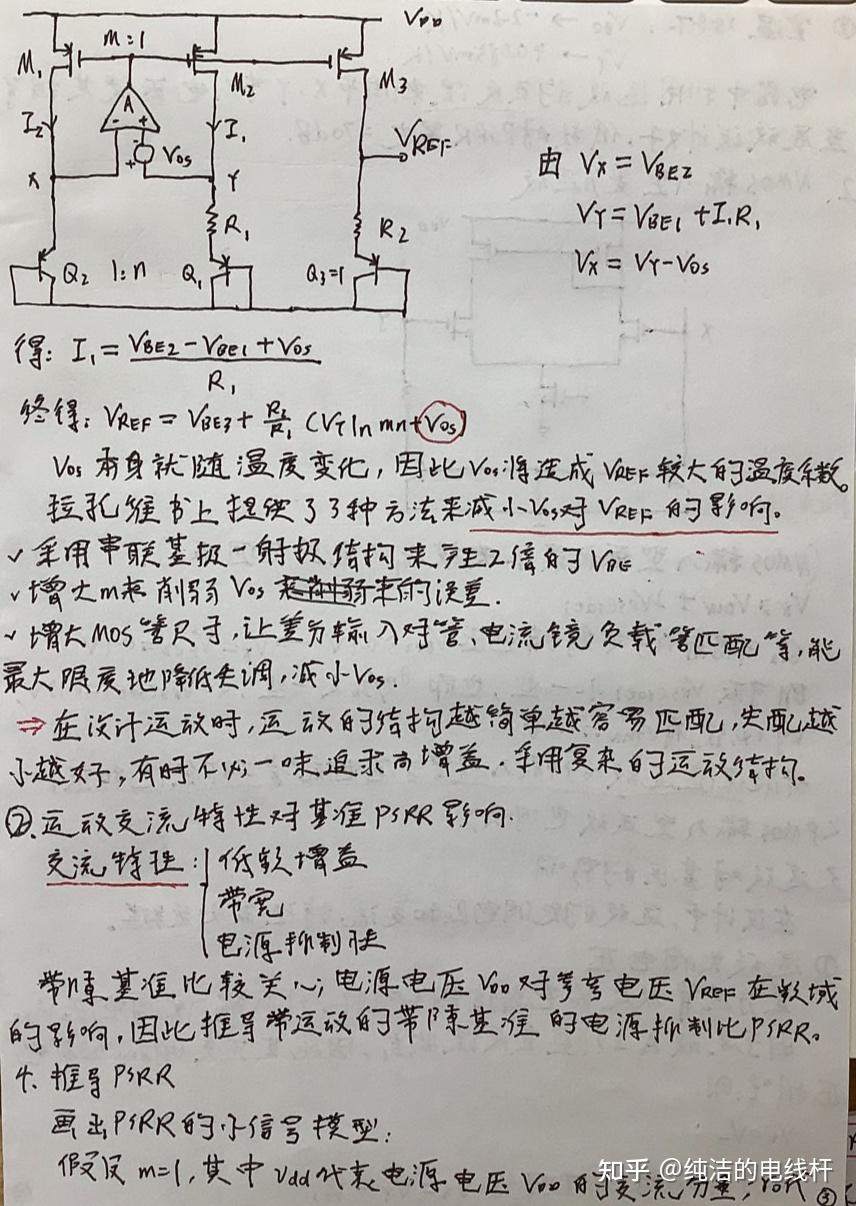 VDD
m=1
M1
M2
M3
A
- +
I2
I1
- +
Vos
VREF
X
Y
R1
R2
Q2
1:n
Q1
Q3=1
由 VX=VBE2
VY=VBE1+I1R1
VX=VY-VOS
得: I1=(VBE2-VBE1+VOS)/R1
终得: VREF=VBE3+R2/R1(VT ln mn+VOS)
Vos本身就随温度变化，因此Vos将造成VREF较大的温度系数。
拉扎维书上提供了3种方法来减小Vos对VREF的影响。
✓采用串联基极-射极结构来产生2倍的VBE
✓增大m来削弱Vos 来的误差.
✓增大MOS管尺寸，让差分输入对管、电流镜负载管匹配等，能
最大限度地降低失调，减小Vos.
⇒在设计运放时，运放的结构越简单越容易匹配，失配越
小越好，有时不必一味追求高增益.采用复杂的运放结构。
②.运放交流特性对基准PSRR影响.
交流特性: 低频增益
带宽
电源抑制比
带隙基准比较关心; 电源电压VDD对参考电压VREF在频域
的影响，因此推导带运放的带隙基准的电源抑制比PSRR。
4. 推导PSRR
画出PSRR的小信号模型:
假设m=1,其中vdd代表电源电压VDD的交流分量;
知乎 @纯洁的电线杆
③